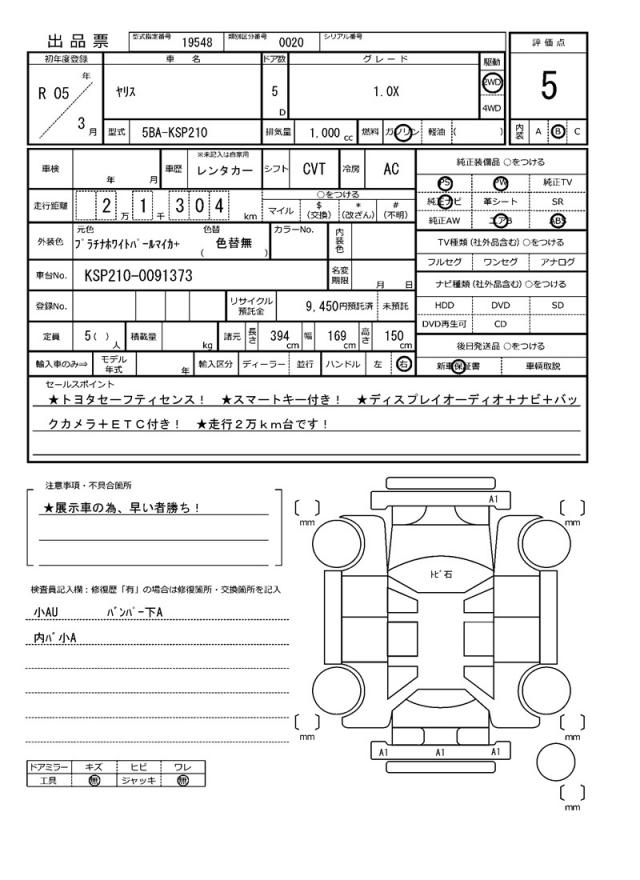 出品票
型式指定番号 19548 類別区分番号 0020 シリアル番号
評価点
5
内装 A B C
初年度登録 車名 ドア数 グレード 駆動
R 05 年 3 月 ヤリス 5 D 1.0X 2WD 4WD
型式 5BA-KSP210 排気量 1.000 cc 燃料 ガソリン 軽油 ( )
車検 年 月 車歴 ※未記入は自家用 レンタカー シフト CVT 冷房 AC
走行距離 2 万 1 千 3 0 4 km ○をつける
マイル $ (交換) * (改ざん) # (不明)
外装色 元色 プラチナホワイトパールマイカ+ 色替 ( 色替無 ) カラーNo. 内装色
車台No. KSP210-0091373 名変期限 月 日
登録No. リサイクル預託金 9,450円預託済 未預託
定員 5( ) 人 積載量 kg 諸元 長さ 394 cm 幅 169 cm 高さ 150 cm
輸入車のみ⇒ モデル年式 年 輸入区分 ディーラー 並行 ハンドル 左 右
純正装備品 ○をつける
PS PW 純正TV
純正ナビ 革シート SR
純正AW エアB ABS
TV種類 (社外品含む) ○をつける
フルセグ ワンセグ アナログ
ナビ種類 (社外品含む) ○をつける
HDD DVD SD
DVD再生可 CD
後日発送品 ○をつける
新車保証書 車輌取説
セールスポイント
★トヨタセーフティセンス! ★スマートキー付き! ★ディスプレイオーディオ+ナビ+バッ
クカメラ+ETC付き! ★走行2万km台です!
注意事項・不具合箇所
★展示車の為、早い者勝ち!
検査員記入欄:修復歴「有」の場合は修復箇所・交換箇所を記入
小AU バンパー下A
内パ小A
ドアミラー キズ ヒビ ワレ
工具 無 ジャッキ 無
A1
[ ] mm [ ] mm
トビ石
[ ] mm [ ] mm
A1 A1 A1
[ ] mm